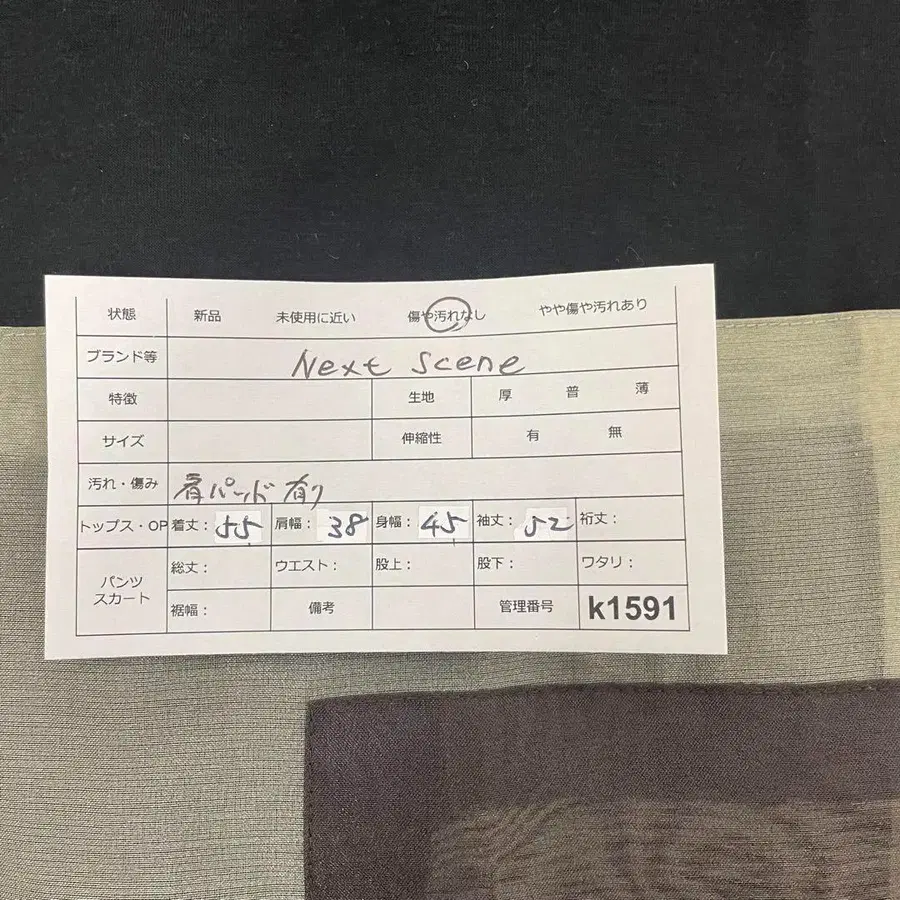 状態 新品 未使用に近い 傷や汚れなし やや傷や汚れあり
ブランド等 Next Scene
特徴 生地 厚 普 薄
サイズ 伸縮性 有 無
汚れ・傷み 肩パッド 有り
トップス・OP 着丈： 55 肩幅： 38 身幅： 45 袖丈： 52 裄丈：
パンツ スカート 総丈： ウエスト： 股上： 股下： ワタリ：
裾幅： 備考 管理番号 k1591